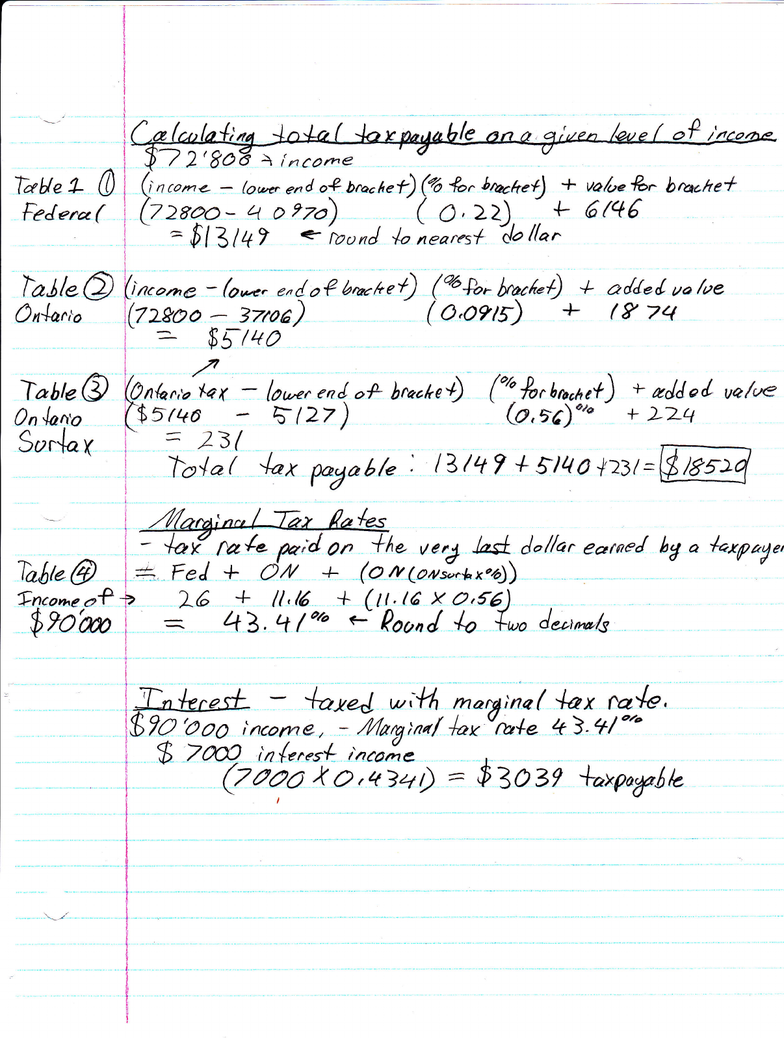 Calculating total tax payable on a given level of income
$72'808 → income
Table 1 ① (income – lower end of bracket) (% for bracket) + value for bracket
Federal (72800 – 40970) (0.22) + 6146
= $13149 ← round to nearest dollar
Table ② (income – lower end of bracket) (% for bracket) + added value
Ontario (72800 – 37106) (0.0915) + 1874
= $5140
Table ③ (Ontario tax – lower end of bracket) (% for bracket) + added value
Ontario ($5140 – 5127) (0.56)% + 224
Surtax = 231
Total tax payable : 13149 + 5140 + 231 = $18520
Marginal Tax Rates
- tax rate paid on the very last dollar earned by a taxpayer
Table ④ = Fed + ON + (ON(ON surtax%))
Income of → 26 + 11.16 + (11.16 X 0.56)
$90'000 = 43.41% ← Round to two decimals
Interest – taxed with marginal tax rate.
$90'000 income, – Marginal tax rate 43.41%
$ 7000 interest income
(7000 X 0.4341) = $3039 taxpayable